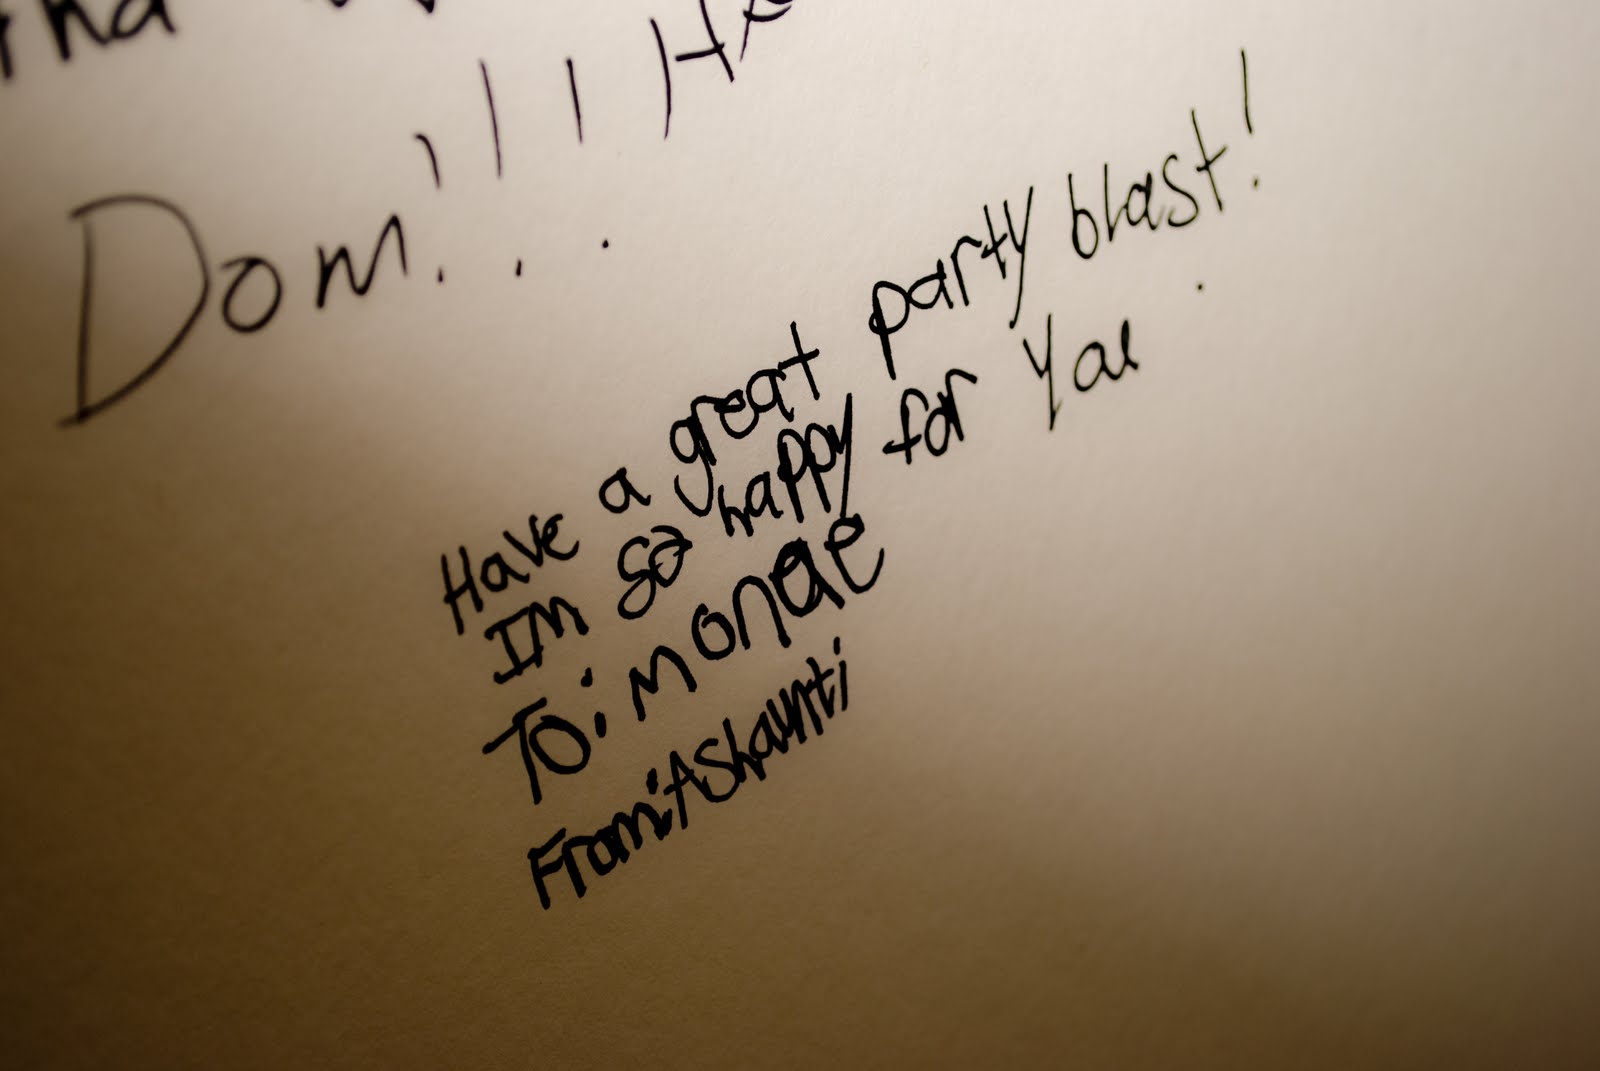 Dom!!!
Have a great party blast!
IM so happy for you
To: monae
From: Ashaunti